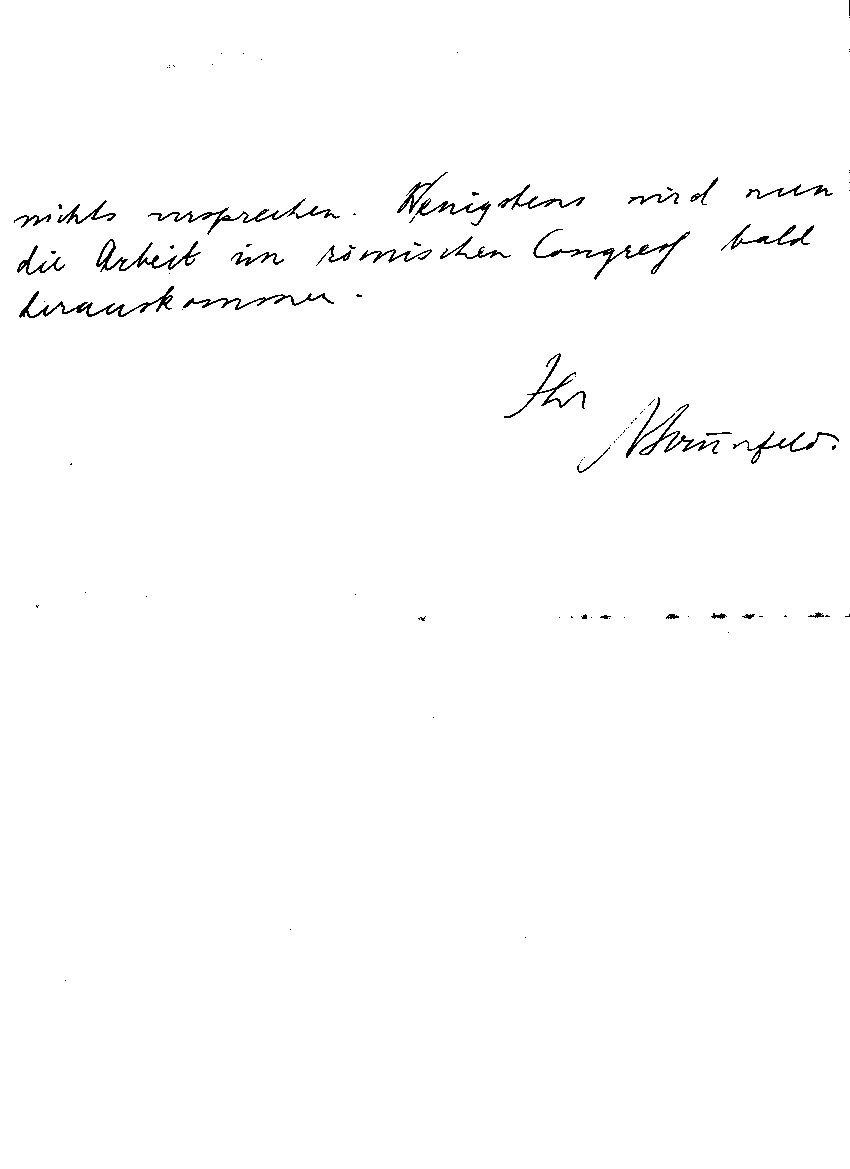 nichts versprechen. Wenigstens wird nun
die Arbeit im römischen Congreß bald
herauskommen.
Ihr